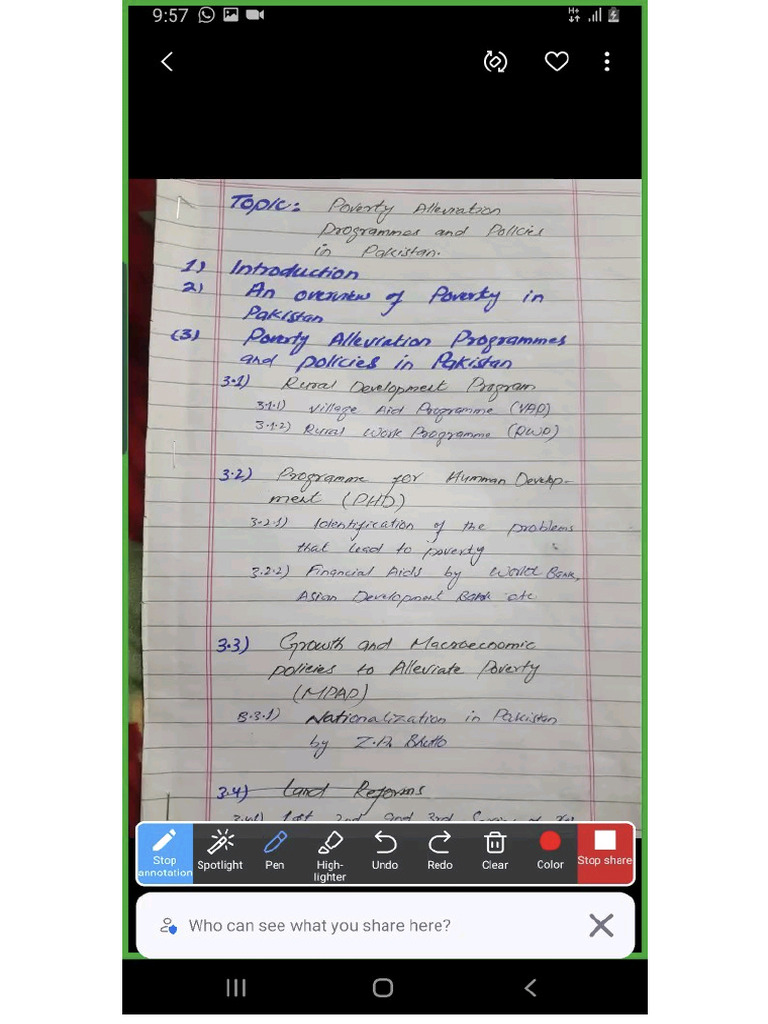 9:57
Topic: Poverty Alleviation
Programmes and Policies
in Pakistan.
1) Introduction
2) An overview of Poverty in
Pakistan
(3) Poverty Alleviation Programmes
and policies in Pakistan
3.1) Rural Development Program
3.1.1) Village Aid Programme (VAP)
3.1.2) Rural Work Programme (RWP)
3.2) Programme for Humman Develop-
ment (PHD)
3.2.1) Identification of the problems
that lead to poverty
3.2.2) Financial Aids by World Bank,
Asian Development Bank etc
3.3) Growth and Macroecnomic
policies to Alleviate Poverty
(MPAP)
3.3.1) Nationalization in Pakistan
by Z.A. Bhutto
3.4) Land Reforms
1st 2nd and 3rd
Stop annotation
Spotlight
Pen
High-lighter
Undo
Redo
Clear
Color
Stop share
Who can see what you share here?